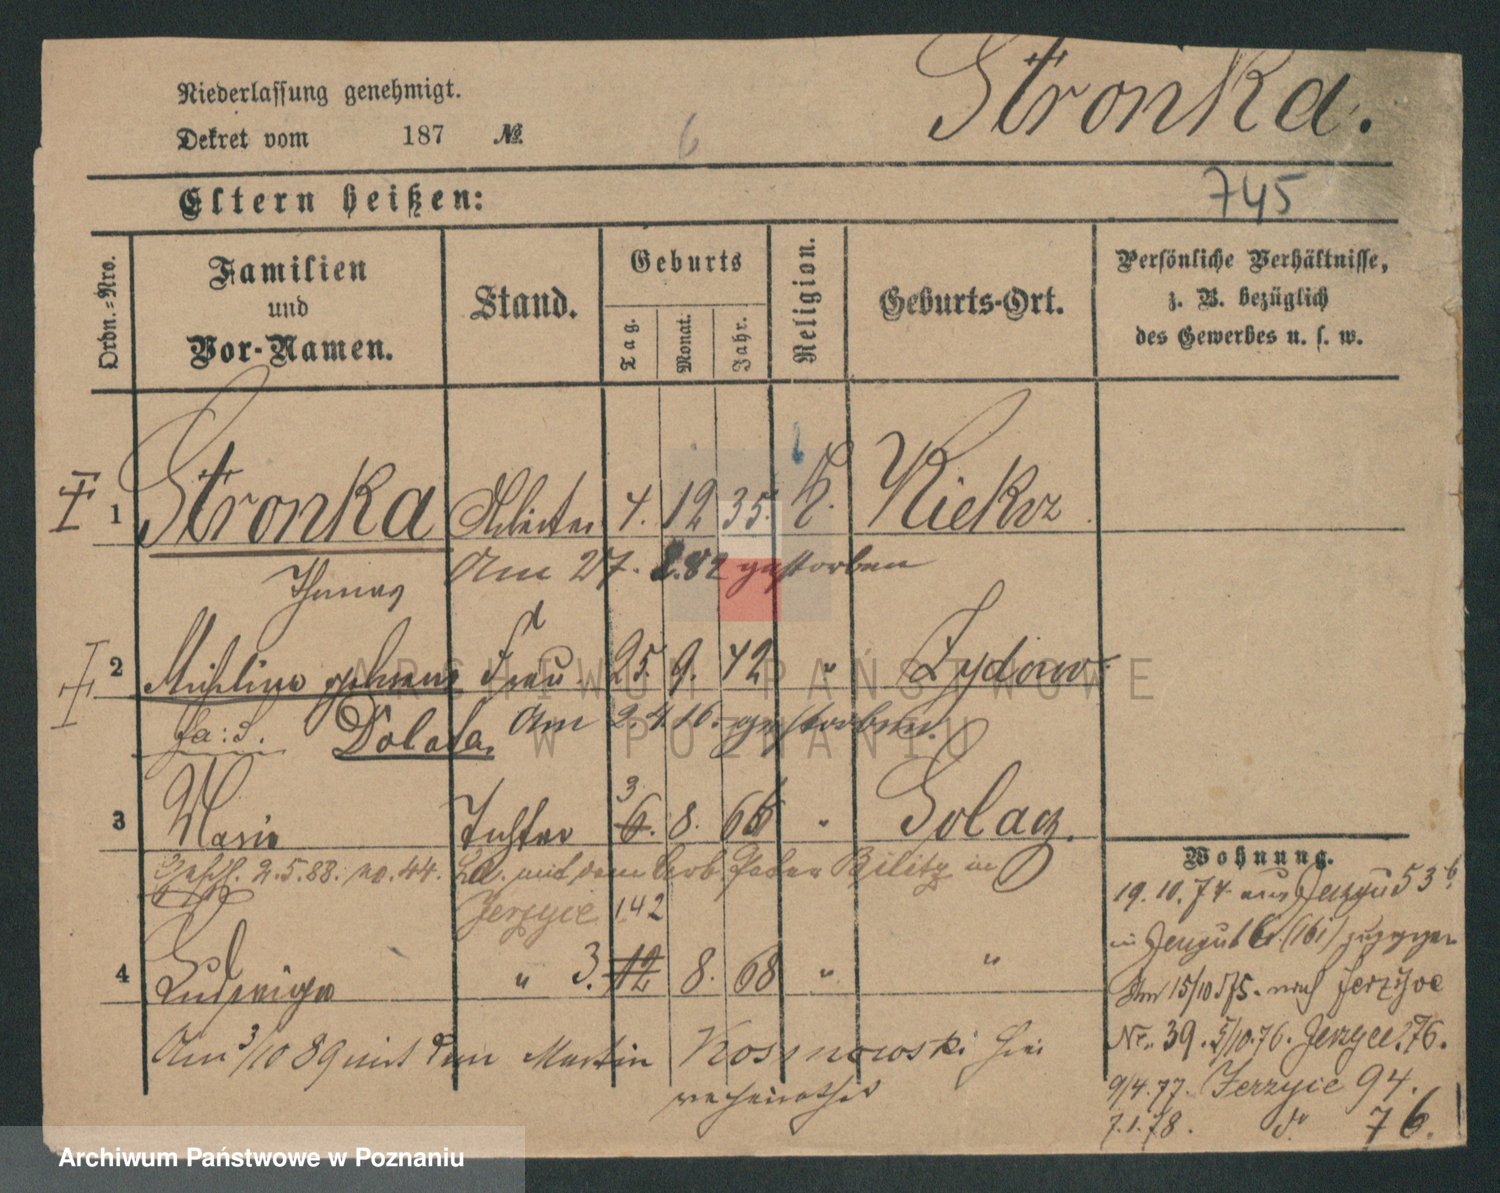 Stronka.
Niederlassung genehmigt.
Dekret vom 187 No.
6
Eltern heißen:
745
Ordn.-Nro.
Familien und Vor-Namen.
Stand.
Geburts
Tag. Monat. Jahr.
Religion.
Geburts-Ort.
Persönliche Verhältnisse,
z. B. bezüglich
des Gewerbes u. s. w.
1 Stronka Arbeiter 4. 12 35. K. Kiekrz
Thomas
Am 27. 2.82 gestorben
2 Frau 25. 9. 42 " Zydowo
Dolata. Am 2.4.16. gestorben.
3 Marie Tochter 3 6. 8. 66 " Golaz.
2.5.88. no. 44. mit dem Arb. Peter Bilitz in
Jerzyce 142
4 Ludwiga " 3. 12 8. 68 " "
Am 3/10 89 mit dem Martin Kosmowski hier
verheirathet
Wohnung.
19. 10. 74 aus 53
Am 15/10 75. nach Jerzyce
Nr. 39. 5/10.76. 76.
9/4.77. Jerzyce 94.
7.1.78. do 76.
ARCHIWUM PAŃSTWOWE
W POZNANIU
Archiwum Państwowe w Poznaniu